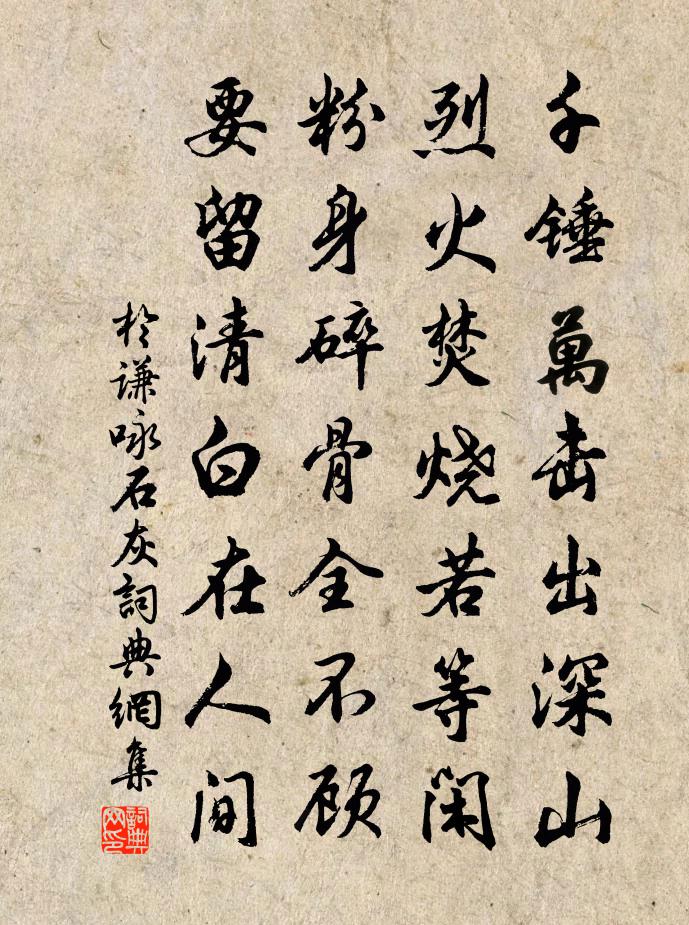 千錘萬击出深山
烈火焚烧若等閑
粉身碎骨全不顾
要留清白在人间
於谦咏石灰詞典網集
詞典网印